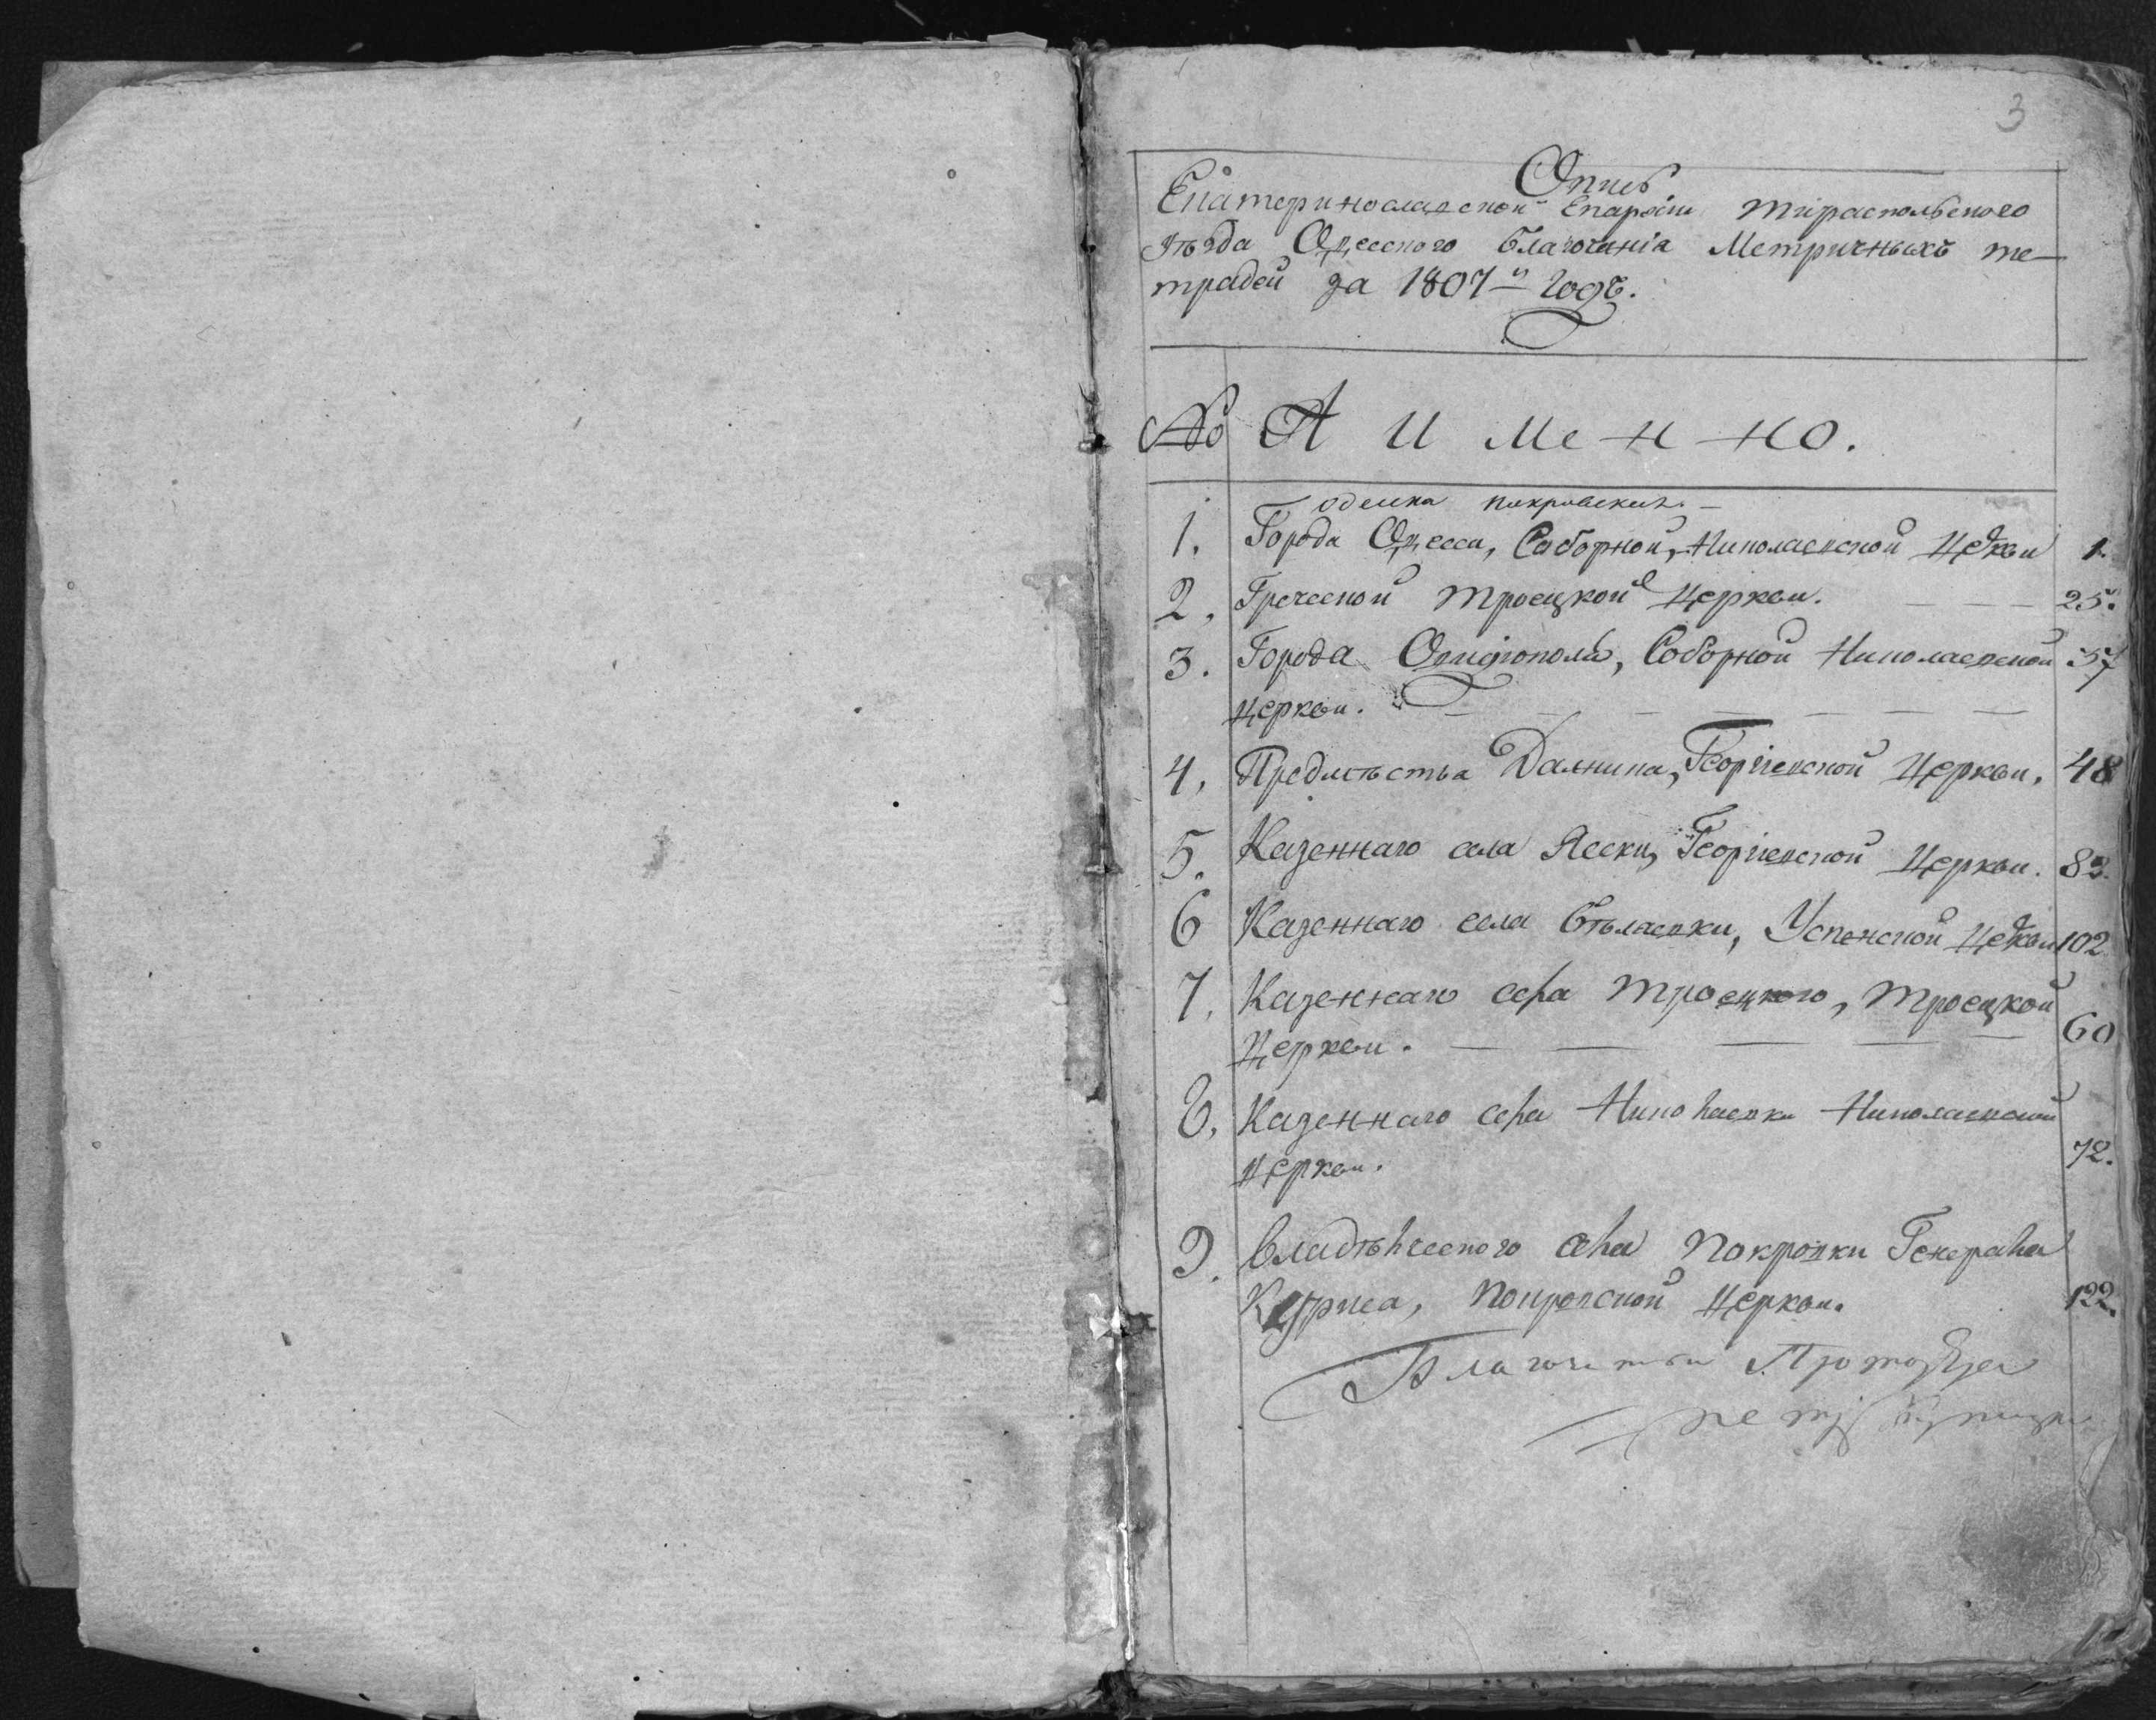 3
Опись
Екатеринославской Епархіи Тираспольского
уѣзда Одесского благочинія Метричныхъ те-
традей за 1807й годъ.
№ А И МЕННО.
одесска покровских. —
1. Города Одесси, Соборной, Николаевской Церкви 1.
2. Греческой Троецкой Церкви. 25.
3. Города Овидіополя, Соборной Николаевской 37
церкви.
4. Предмѣстья Далника, Георгіевской Церкви. 48
5. Казеннаго села Яски, Георгіевской Церкви. 83.
6 Казеннаго села Бѣлаевки, Успенской Церкви 102
7. Казеннаго села Троецкого, Троецкой
Церкви. 60
8. Казеннаго села Николаевки Николаевской
церкви. 72.
9. Владѣлческого села Покровки Генерала
Куриса, Покровской Церкви. 122.
Благочинный Протоіерей